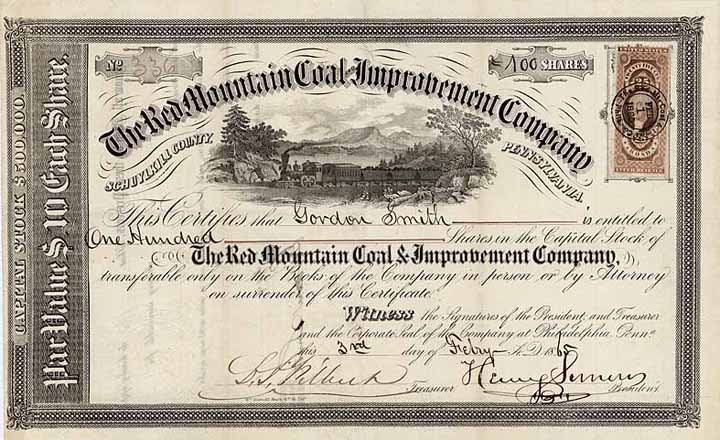 No 336
100 SHARES
The Red Mountain Coal & Improvement Company
SCHUYLKILL COUNTY, PENNSYLVANIA.
This Certifies that Gordon Smith is entitled to
One Hundred Shares in the Capital Stock of
The Red Mountain Coal & Improvement Company,
transferable only on the Books of the Company in person or by Attorney
on surrender of this Certificate.
Witness the Signatures of the President, and Treasurer
and the Corporate Seal of the Company at Philadelphia Penna
this 3rd day of Feby A.D. 1865
Treasurer
President.
CAPITAL STOCK $500,000.
Par Value $10 Each Share.
UNITED STATES
25